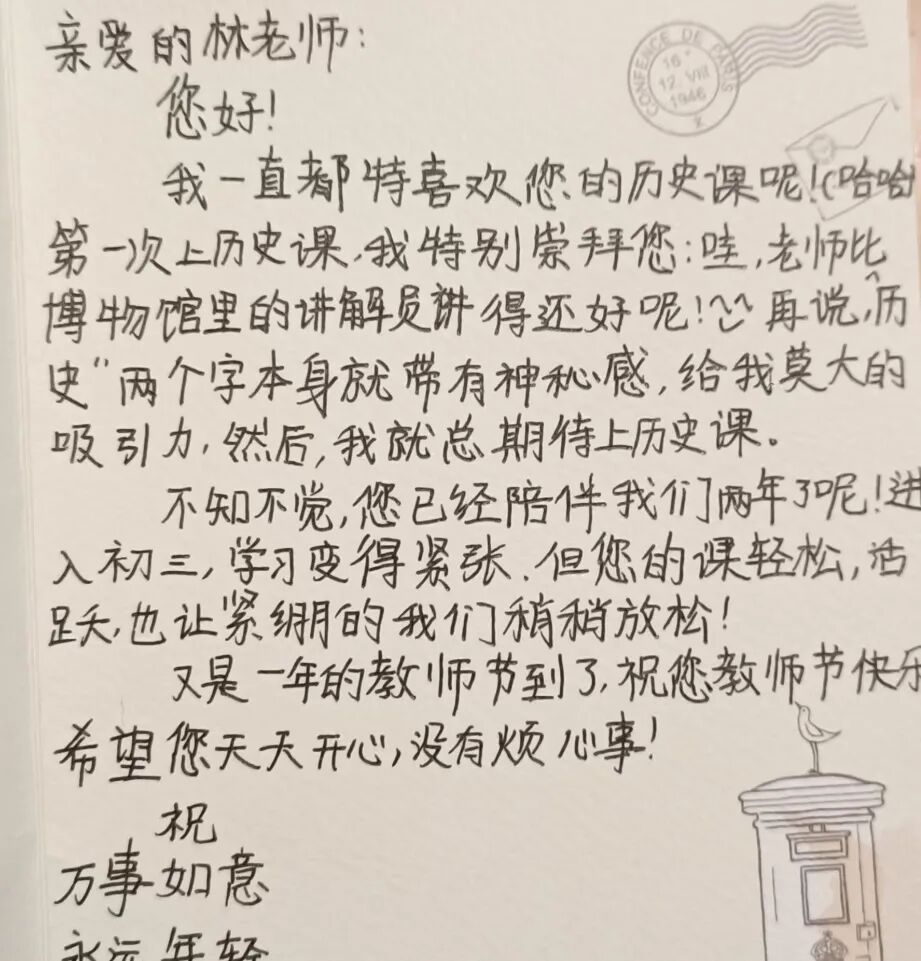 亲爱的林老师:
您好!
我一直都特喜欢您的历史课呢!(哈哈
第一次上历史课,我特别崇拜您:哇,老师比
博物馆里的讲解员讲得还好呢!再说,“历
史”两个字本身就带有神秘感,给我莫大的
吸引力,然后,我就总期待上历史课。
不知不觉,您已经陪伴我们两年了呢!进
入初三,学习变得紧张.但您的课轻松,活
跃,也让紧绷的我们稍稍放松!
又是一年的教师节到了,祝您教师节快乐
希望您天天开心,没有烦心事!
祝
万事如意
永远年轻
CONFENCE DE PARIS
16
12 VIII
1946